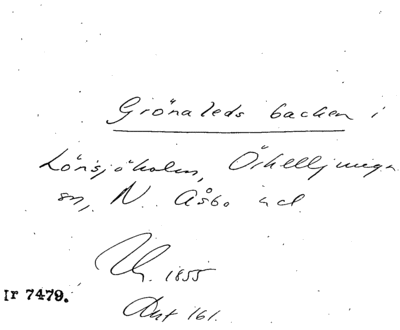 Grönaleds backen i
Lönsjöholm, Örkelljunga
sn, N. Åsbo hd.
1855
Ir 7479.
161.